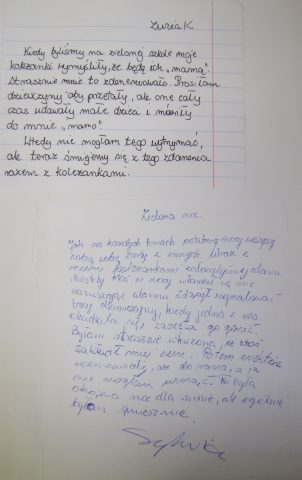 Zuzia K.
Kiedy byliśmy na zielonej szkole moje
koleżanki wymyśliły, że będę ich „mamą”.
Strasznie mnie to zdenerwowało. Prosiłam
dziewczyny aby przestały, ale one cały
czas udawały małe dzieci i mówiły
do mnie „mamo”.
Wtedy nie mogłam tego wytrzymać,
ale teraz śmiejemy się z tego zdarzenia
razem z koleżankami.
Zielona noc.
Jak na każdych ostatniej nocy wszyscy
robią sobie żarty z innych. Wraz z
moimi koleżankami alarm.
Niestety ktoś w nocy się nie
naruszając alarmu i zdążył wymalować
trzy dziewczyny, kiedy jedna z nas
się i zaczęła go gonić.
Byłam strasznie że ktoś
zakłócił mój sen. Potem wszyscy
rozmawiały, aż do rana, a ja
nie mogłam usnąć. To była
noc dla mnie, ale ogólnie
było śmiesznie.